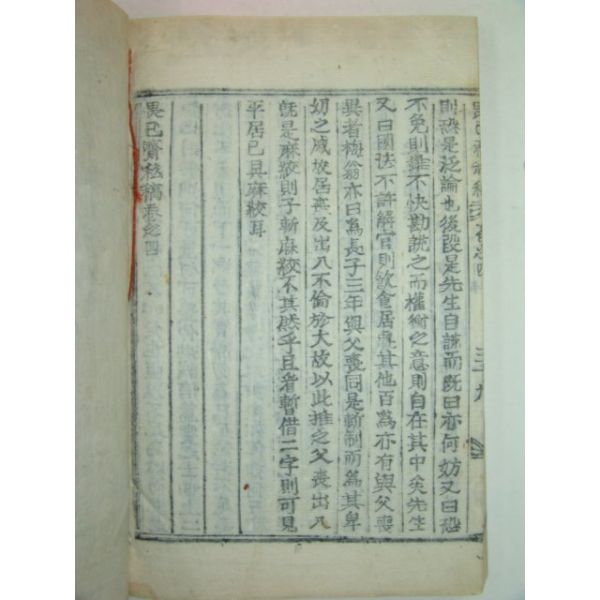 則恐是泛論也後段是先生自說而旣曰亦何妨又曰恐
不免則雖不快勘說之而權衡之意則自在其中矣先生
又曰國法不許解官則飮食居處其他百爲亦有與父喪
異者梅翁亦曰爲長子三年與父喪同是斬制而爲其卑
幼之戚故居喪及出入不倫於大故以此推之父喪出入
旣是麻絞則子斬麻絞不其然乎且着暫借二字則可見
平居已具麻絞耳
畏已齋私稿卷之四
卷之四
三九